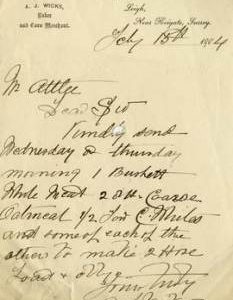 A. J. WICKS,
Baker
and Corn Merchant.
Leigh,
Near Reigate, Surrey.
July 15th 1904
Mr Attlee
Dear Sir
Kindly send
Wednesday or thursday
morning 1 Bushell
Whole Meat 2 Coarse
Oatmeal 1/2 Ton
and some of each of the
other to make 2 Horse
Load &
Yours Truly